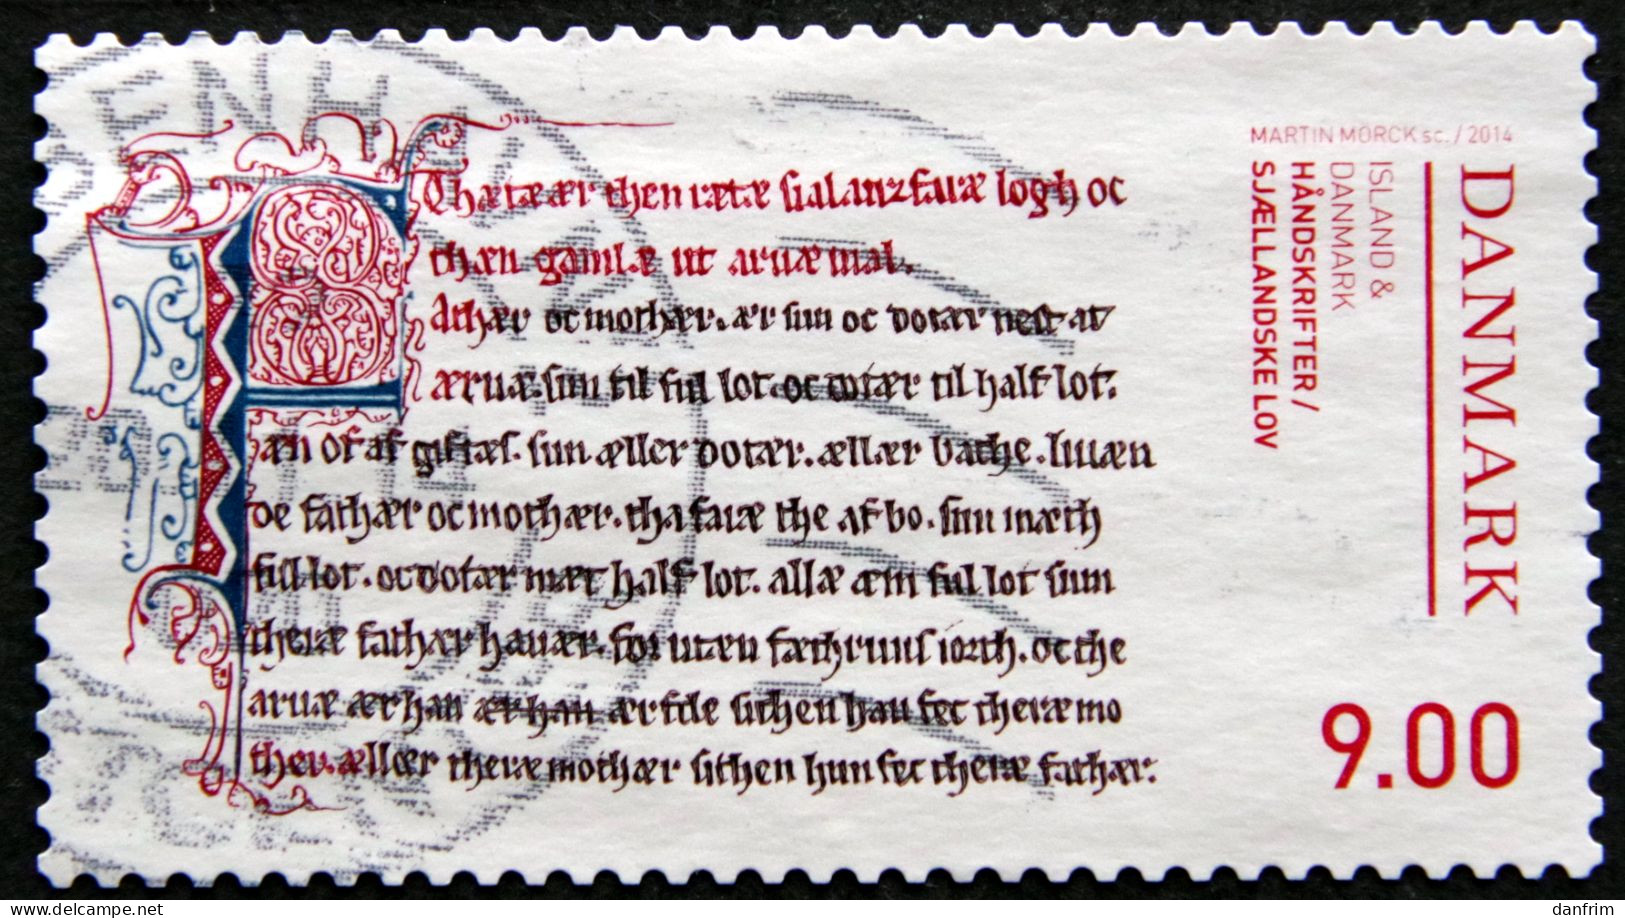 Thætæ ær then rætæ sialanzfaræ logh oc
thæn gamlæ ut aruæ mal.
athær oc mothær. ær sun oc dotær nest at
æruæ. sun til ful lot. oc dotær til half lot.
æn of af giftæs. sun æller dotær. ællær bathe. liuæn
de fathær oc mothær. tha faræ the af bo. sun mæth
ful lot. oc dotær mæt half lot. allæ æm ful lot sum
theræ fathær hauær. for uten fæthruns iorth. oc the
aruæ ær han ær han ær fde sithen hau fec theræ mo
ther. ællær theræ mothær sithen hun fec theræ fathær.
MARTIN MÖRCK sc. / 2014
DANMARK
ISLAND &
DANMARK
HÅNDSKRIFTER /
SJÆLLANDSKE LOV
9.00
danfrim